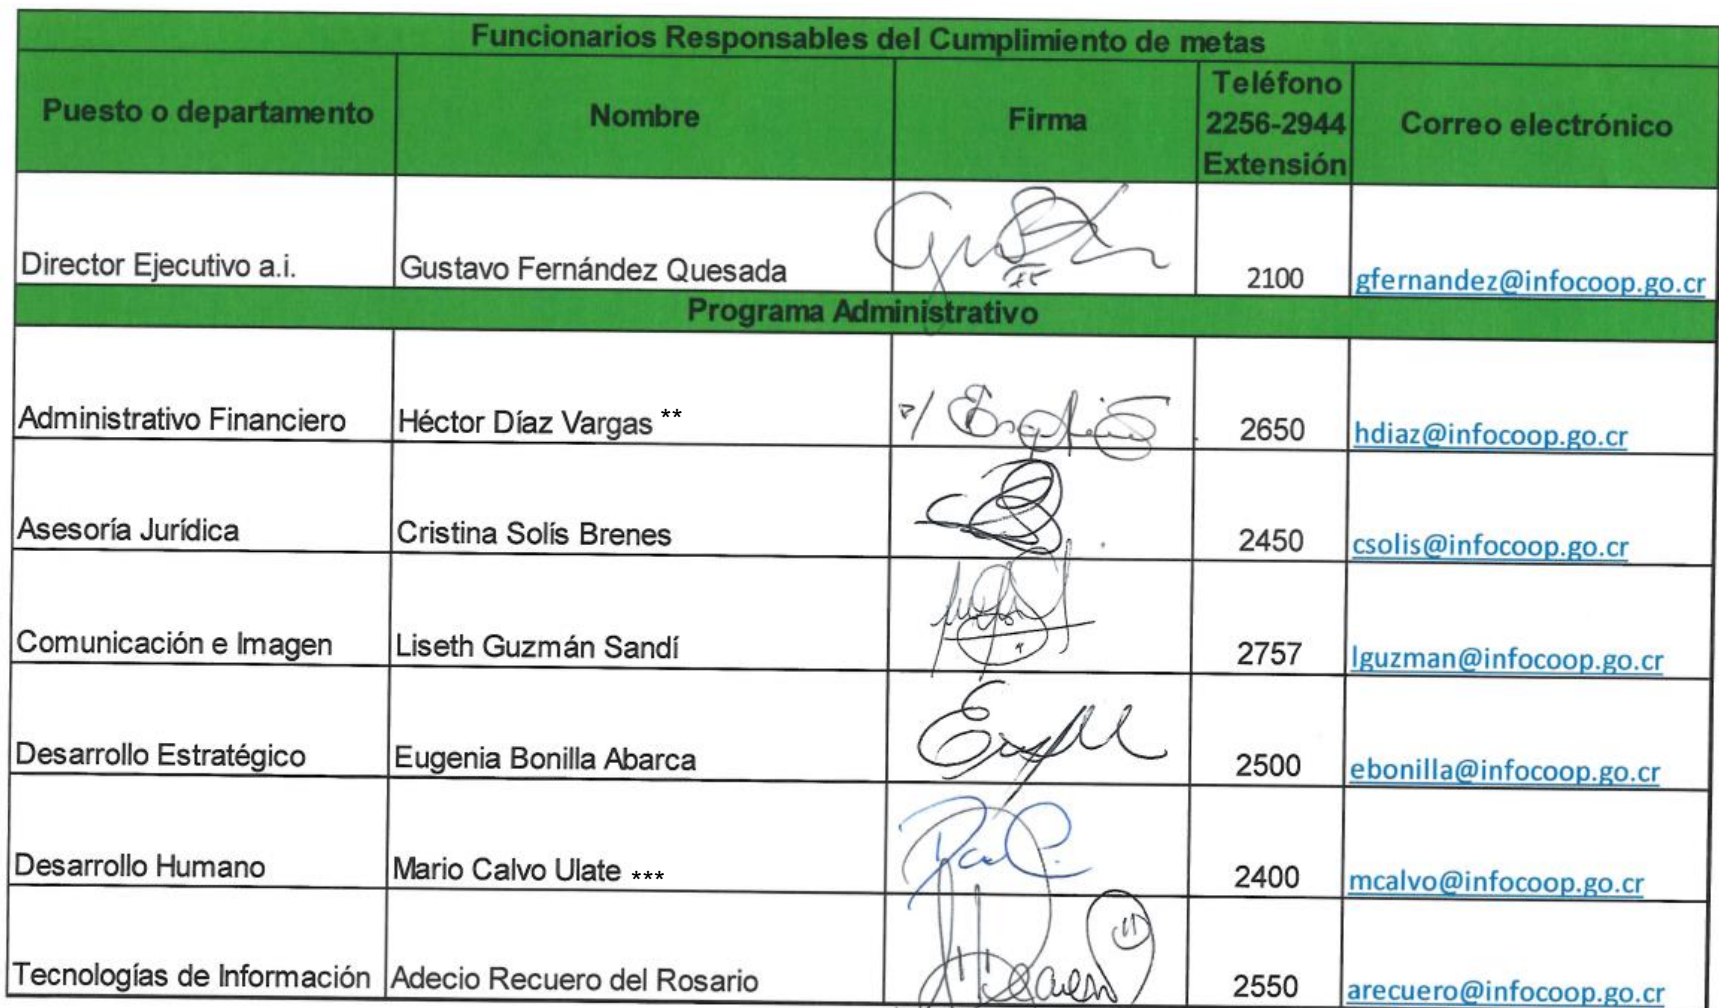 Funcionarios Responsables del Cumplimiento de metas
Puesto o departamento Nombre Firma Teléfono 2256-2944 Extensión Correo electrónico
Director Ejecutivo a.i. Gustavo Fernández Quesada 2100 gfernandez@infocoop.go.cr
Programa Administrativo
Administrativo Financiero Héctor Díaz Vargas ** 2650 hdiaz@infocoop.go.cr
Asesoría Jurídica Cristina Solís Brenes 2450 csolis@infocoop.go.cr
Comunicación e Imagen Liseth Guzmán Sandí 2757 lguzman@infocoop.go.cr
Desarrollo Estratégico Eugenia Bonilla Abarca 2500 ebonilla@infocoop.go.cr
Desarrollo Humano Mario Calvo Ulate *** 2400 mcalvo@infocoop.go.cr
Tecnologías de Información Adecio Recuero del Rosario 2550 arecuero@infocoop.go.cr